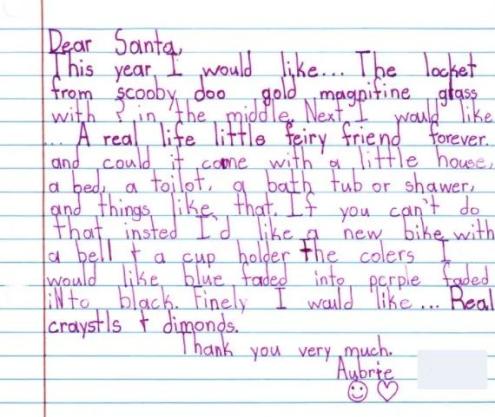 Dear Santa,
This year I would like... The locket
from scooby doo gold magnifine glass
with ? in the middle. Next I would like
... A real life little feiry friend forever.
and could it come with a little house,
a bed, a toilot, a bath tub or shawer,
and things like that. If you can't do
that insted I'd like a new bike with
a bell + a cup holder the colers I
would like blue faded into perple faded
iNto black. Finely I would like... Real
craystls + dimonds.
Thank you very much.
Aubrie